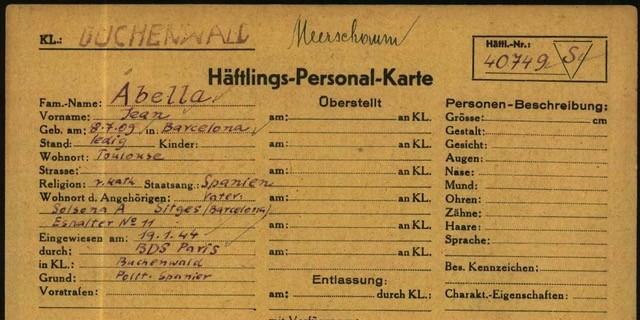 KL.: BUCHENWALD
Meerschaum
Häftl.-Nr.:
40749 S
Häftlings-Personal-Karte
Fam.-Name: Abella
Vorname: Jean
Geb. am: 8.7.09 in: Barcelona
Stand: ledig Kinder:
Wohnort: Toulouse
Strasse:
Religion: r. kath Staatsang.: Spanien
Wohnort d. Angehörigen: Vater:
Solsona A Sitges (Barcelona)
Esnalter No 11
Eingewiesen am: 19.1.44
durch: BDS Paris
in KL.: Buchenwald
Grund: Polit. Spanier
Vorstrafen:
Überstellt
am: an KL.
am: an KL.
am: an KL.
am: an KL.
am: an KL.
am: an KL.
Entlassung:
am: durch KL.:
mit Verfügung
Personen-Beschreibung:
Grösse: cm
Gestalt:
Gesicht:
Augen:
Nase:
Mund:
Ohren:
Zähne:
Haare:
Sprache:
Bes. Kennzeichen:
Charakt.-Eigenschaften: